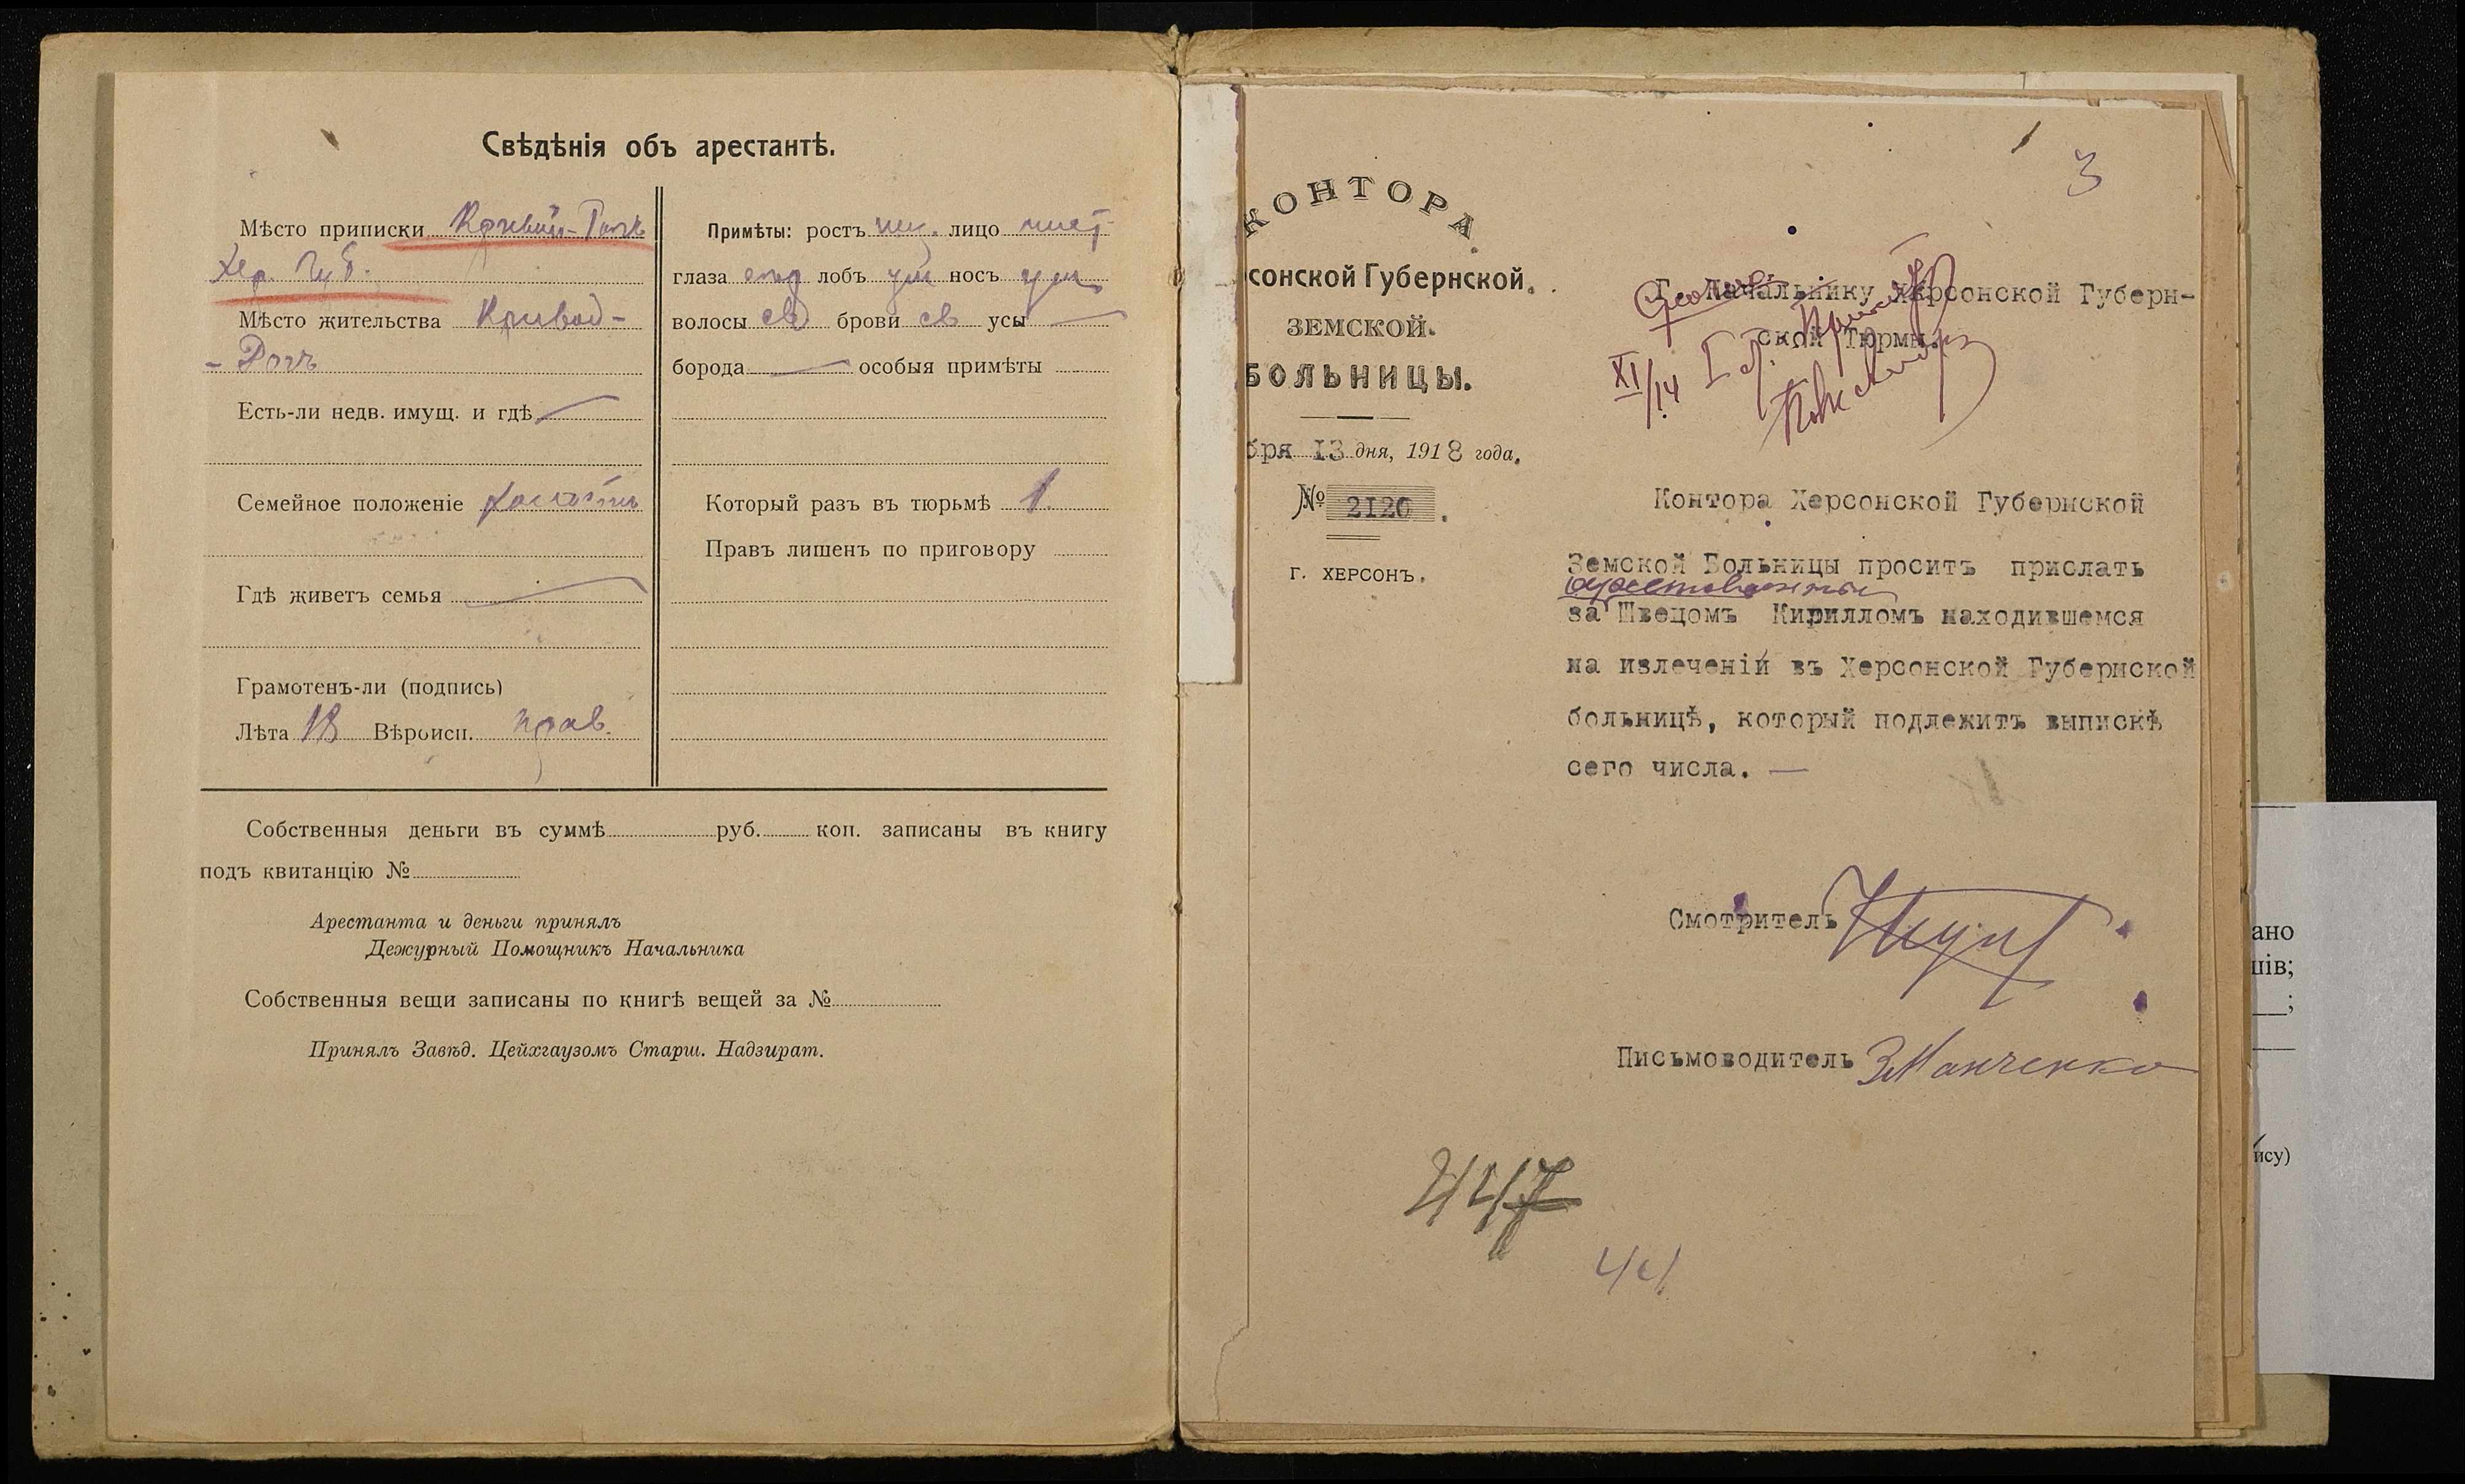 Свѣдѣнія объ арестантѣ.
Мѣсто приписки Кривой-Рогъ
Хер. Губ.
Мѣсто жительства Кривой-
- Рогъ
Есть-ли недв. имущ. и гдѣ
Семейное положеніе холостъ
Гдѣ живетъ семья
Грамотенъ-ли (подпись)
Лѣта 18 Вѣроисп. прав.
Примѣты: ростъ лицо чист
глаза лобъ ум носъ ум
волосы св брови св усы
борода особыя примѣты
Который разъ въ тюрьмѣ 1.
Правъ лишенъ по приговору
Собственныя деньги въ суммѣ руб. коп. записаны въ книгу
подъ квитанцію №
Арестанта и деньги принялъ
Дежурный Помощникъ Начальника
Собственныя вещи записаны по книгѣ вещей за №
Принялъ Завѣд. Цейхгаузомъ Старш. Надзират.
3
КОНТОРА
сонской Губернской.
ЗЕМСКОЙ.
БОЛЬНИЦЫ.
бря 13 дня, 1918 года.
№ 2120.
Г. ХЕРСОНЪ.
Г. Начальнику Херсонской Губерн-
ской Тюрмы.
XI/14
Контора Херсонской Губернской
Земской Больницы проситъ прислать
арестованным
за Швецомъ Кирилломъ находившемся
на излеченій въ Херсонской Губернской
больницѣ, который подлежитъ выпискѣ
сего числа. —
Смотритель
Письмоводитель
447
ано
шів;
ису)